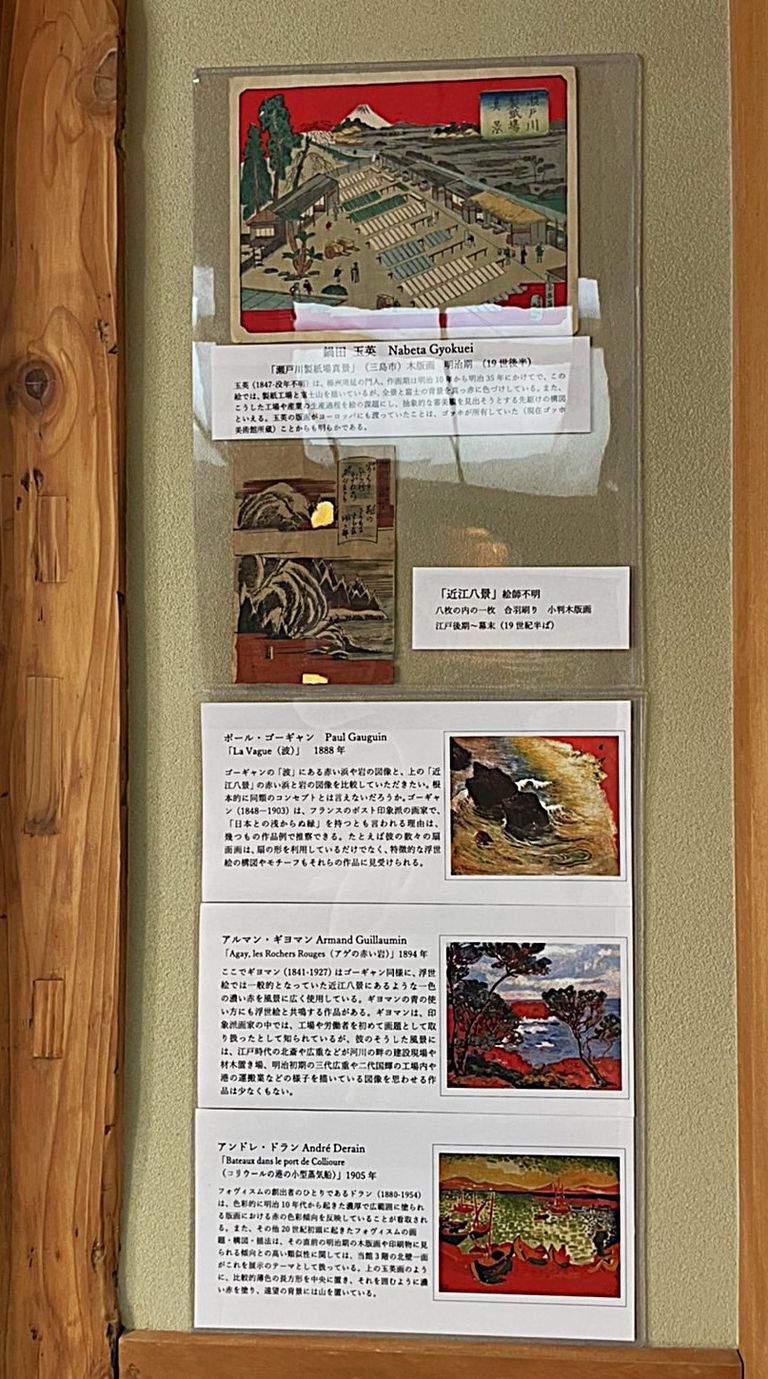 瀬戸川
製紙場
真景
鍋田 玉英 Nabeta Gyokuei
「瀬戸川製紙場真景」（三島市）木版画 明治期 （19世後半）
玉英（1847-没年不明）は、楊州周延の門人、作画期は明治10年から明治35年にかけてで、この
絵では、製紙工場と富士山を描いているが、全景と富士の背景を真っ赤に色づけしている。また、
こうした工場や産業の生産過程を絵の課題にし、抽象的な審美観を見出そうとする先駆けの構図
といえる。玉英の版画がヨーロッパにも渡っていたことは、ゴッホが所有していた（現在ゴッホ
美術館所蔵）ことからも明らかである。
「近江八景」絵師不明
八枚の内の一枚 合羽刷り 小判木版画
江戸後期～幕末（19世紀半ば）
ポール・ゴーギャン Paul Gauguin
「La Vague（波）」 1888年
ゴーギャンの「波」にある赤い浜や岩の図像と、上の「近
江八景」の赤い浜と岩の図像を比較していただきたい。根
本的に同類のコンセプトとは言えないだろうか。ゴーギャ
ン（1848－1903）は、フランスのポスト印象派の画家で、
「日本との浅からぬ縁」を持つとも言われる理由は、
幾つもの作品例で推察できる。たとえば彼の数々の扇
面画は、扇の形を利用しているだけでなく、特徴的な浮世
絵の構図やモチーフもそれらの作品に見受けられる。
アルマン・ギヨマン Armand Guillaumin
「Agay, les Rochers Rouges（アゲの赤い岩）」1894年
ここでギヨマン（1841-1927）はゴーギャン同様に、浮世
絵では一般的となっていた近江八景にあるような一色
の濃い赤を風景に広く使用している。ギヨマンの青の使
い方にも浮世絵と共鳴する作品がある。ギヨマンは、印
象派画家の中では、工場や労働者を初めて画題として取
り扱ったとして知られているが、彼のそうした風景に
は、江戸時代の北斎や広重などが河川の畔の建設現場や
材木置き場、明治初期の三代広重や二代国輝の工場内や
港の運搬業などの様子を描いている図像を思わせる作
品は少なくもない。
アンドレ・ドラン André Derain
「Bateaux dans le port de Collioure
（コリウールの港の小型蒸気船）」1905年
フォヴィスムの創出者のひとりであるドラン（1880-1954）
は、色彩的に明治10年代から起きた濃厚で広範囲に塗られ
る版画における赤の色彩傾向を反映していることが看取され
る。また、その他20世紀初頭に起きたフォヴィスムの画
題・構図・描法は、その直前の明治期の木版画や印刷物に見
られる傾向との高い類似性に関しては、当館3階の北壁一面
がこれを展示のテーマとして扱っている。上の玉英画のよう
に、比較的薄色の長方形を中央に置き、それを囲むように濃
い赤を塗り、遠望の背景には山を置いている。